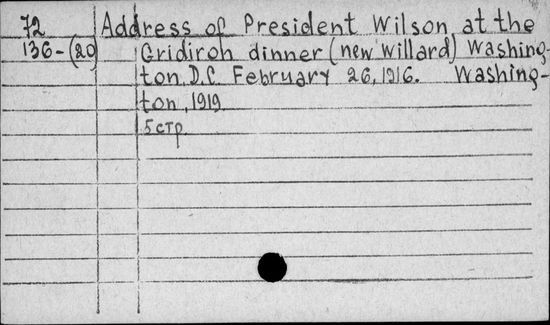 72 Address of President Wilson at the
136-(20) Gridiroh dinner (new Willard) Washing-
ton, D.C. February 26, 1916. Washing-
ton, 1919
5 стр.